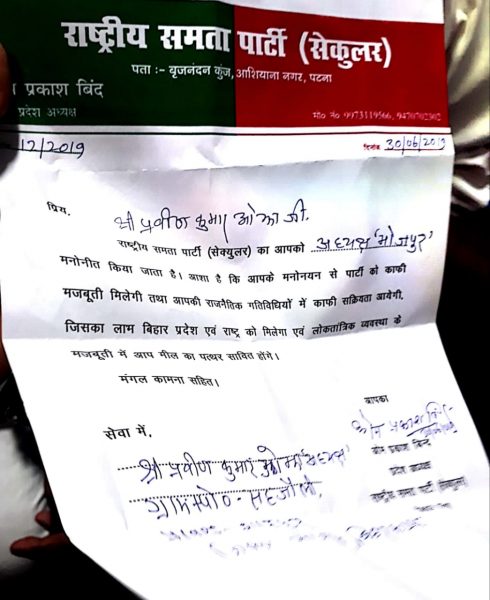 राष्ट्रीय समता पार्टी (सेकुलर)
पता :- बृजनंदन कुंज, आशियाना नगर, पटना
प्रकाश बिंद
प्रदेश अध्यक्ष
मो० नं० 9973119566, 9470702302
12/2019
दिनांक 30/06/2019
प्रिय,
श्री प्रवीण कुमार ओझा जी.
राष्ट्रीय समता पार्टी (सेक्युलर) का आपको अध्यक्ष 'भोजपुर'
मनोनीत किया जाता है। आशा है कि आपके मनोनयन से पार्टी को काफी
मजबूती मिलेगी तथा आपकी राजनैतिक गतिविधियों में काफी सक्रियता आयेगी,
जिसका लाभ बिहार प्रदेश एवं राष्ट्र को मिलेगा एवं लोकतांत्रिक व्यवस्था के
मजबूती में आप मील का पत्थर साबित होंगे।
मंगल कामना सहित।
आपका
ओम प्रकाश बिंद
सेवा में,
ओम प्रकाश बिन्द
श्री प्रवीण कुमार ओझा 'अध्यक्ष'
प्रदेश अध्यक्ष
ग्राम+पो०-
राष्ट्रीय समता पार्टी (सेकुलर)